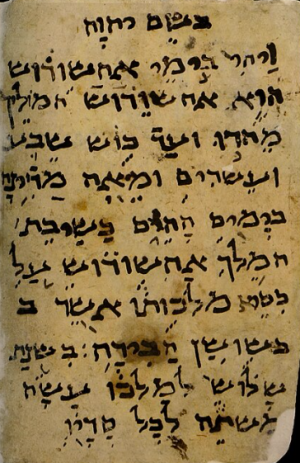 בשם יהוה
ויהי בימי אחשורוש
הוא אחשורוש המלך
מהדו ועד כוש שבע
ועשרים ומאה מדינה
בימים ההים כשיבת
המלך אחשורוש על
כסא מלכותו אשר ב
בשושן הבירה: בשנת
שלוש למלכו עשה
משתה לכל סריו